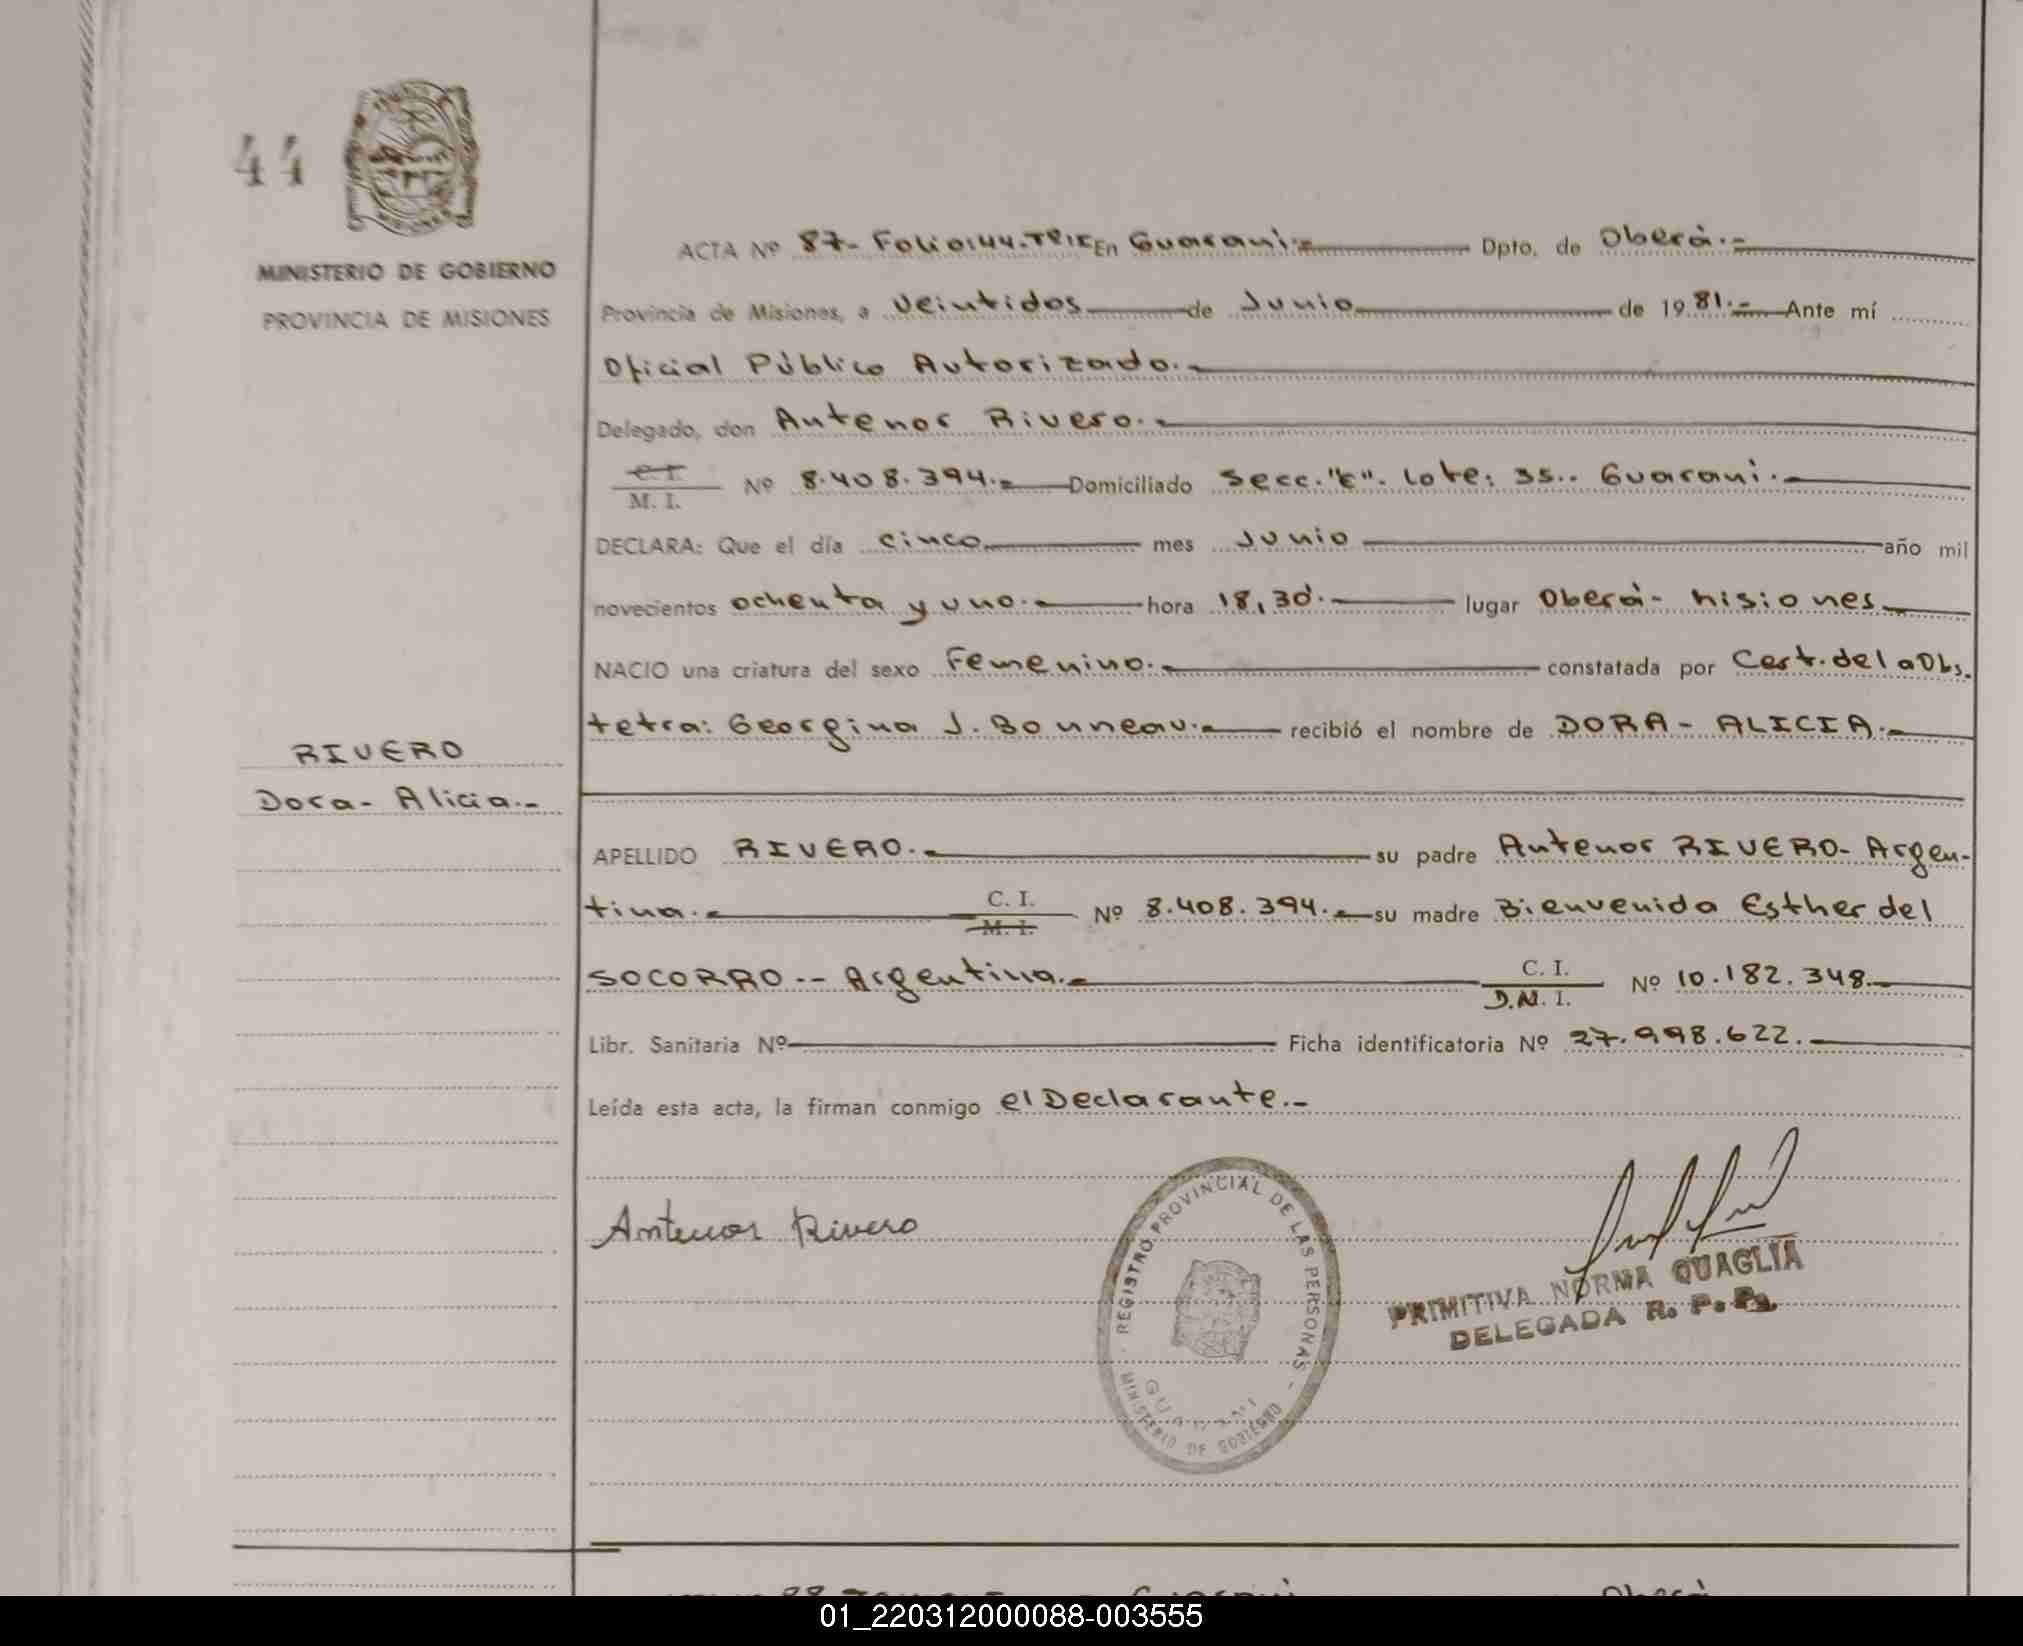 44
MINISTERIO DE GOBIERNO
PROVINCIA DE MISIONES
ACTA Nº 87- Folio:44. Tº:I En Guarani.- Dpto. de Oberá.-
Provincia de Misiones, a veintidos de Junio de 1981.- Ante mí
Oficial Público Autorizado.-
Delegado, don Antenor Rivero.-
C.I.
M. I. Nº 8.408.394.- Domiciliado Secc. "C". lote: 35.. Guarani.-
DECLARA: Que el día cinco mes Junio año mil
novecientos ochenta y uno.- hora 18,30.- lugar Oberá- Misiones
NACIO una criatura del sexo Femenino.- constatada por Cert. de la Obs.
tetra: Georgina J. Bonneau.- recibió el nombre de DORA - ALICIA.-
RIVERO
Dora - Alicia.-
APELLIDO RIVERO.- su padre Antenor RIVERO- Argen-
tina.- C. I.
M. I. Nº 8.408.394.- su madre Bienvenida Esther del
SOCORRO -- Argentina.- C. I.
D.N. I. Nº 10.182.348.-
Libr. Sanitaria Nº Ficha identificatoria Nº 27.998.622.-
Leída esta acta, la firman conmigo el Declarante.-
Antenor Rivero
REGISTRO PROVINCIAL DE LAS PERSONAS -
GUARANI
MINISTERIO DE GOBIERNO
PRIMITIVA NORMA QUAGLIA
DELEGADA R. P. P.
01_220312000088-003555